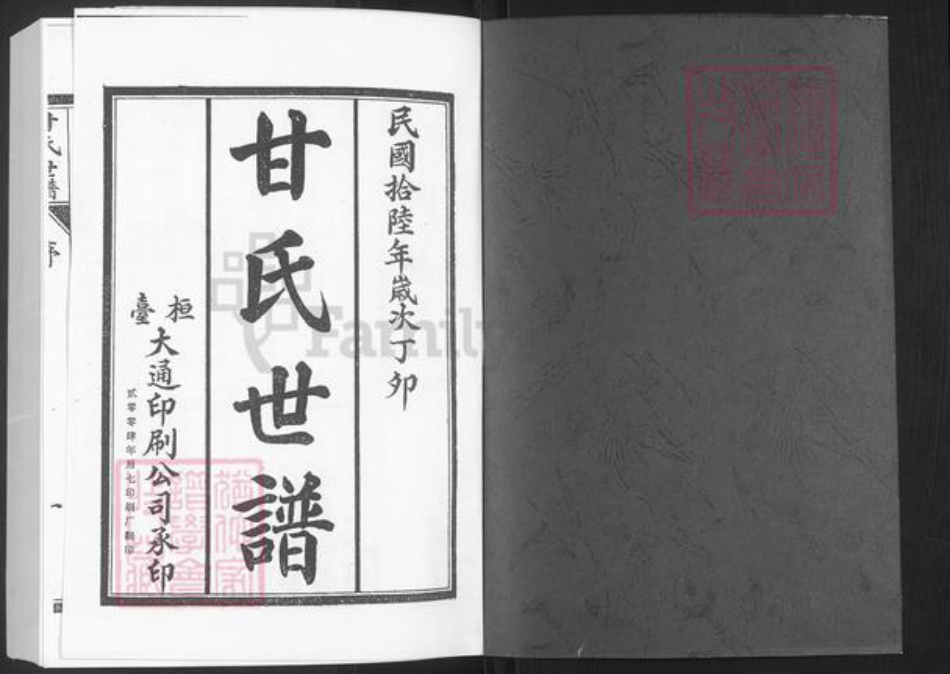 民國拾陸年歲次丁卯
甘氏世譜
桓臺大通印刷公司承印
貳零零肆年周七印刷厂翻印
甘氏世譜
序
一
Family